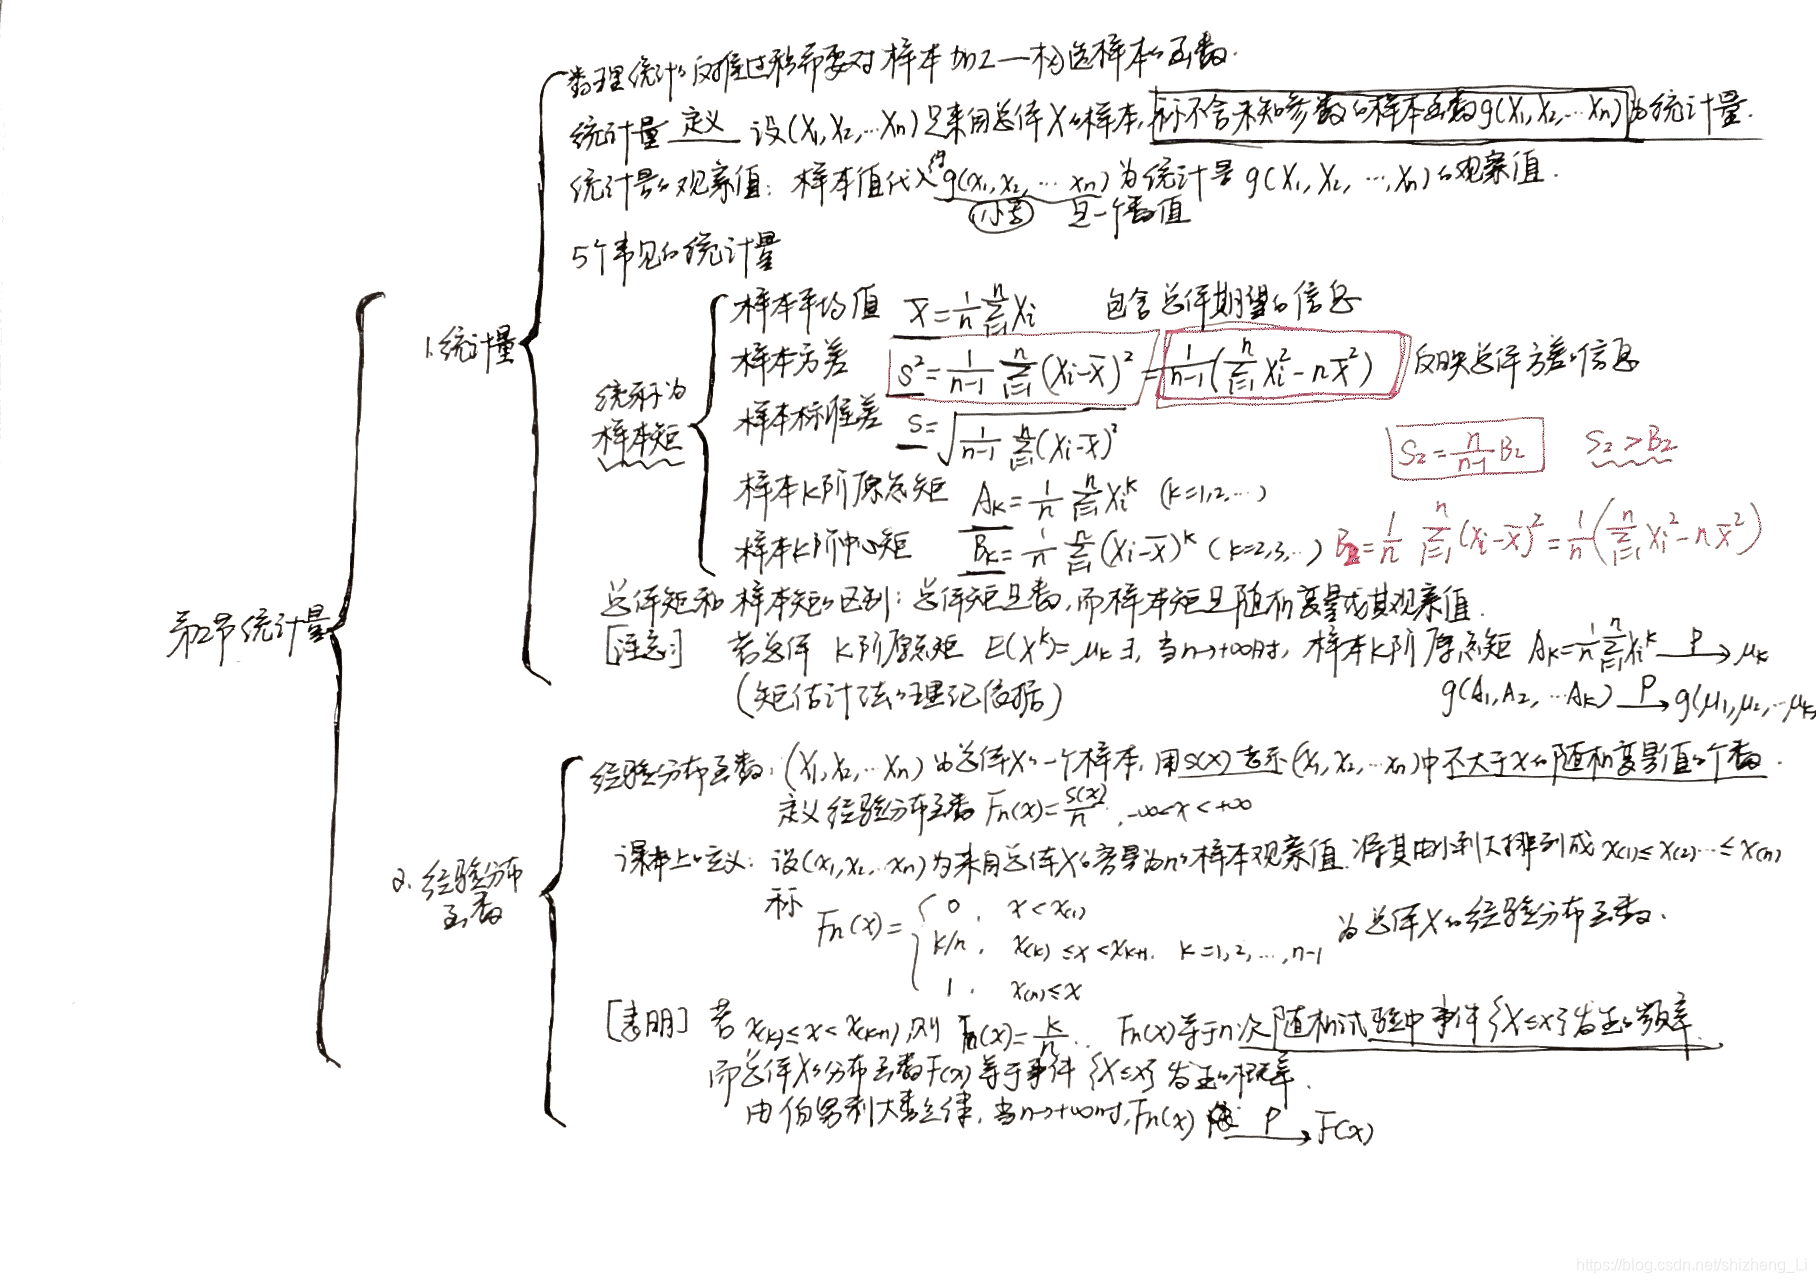 数理统计的反推过程需要对样本加工—构造样本的函数.
统计量 定义 设(X₁,X₂,…Xn)是来自总体X的样本,称不含未知参数的样本函数g(X₁,X₂,…Xn)为统计量.
统计量的观察值: 样本值代入的g(x₁,x₂,…xn)为统计量g(X₁,X₂,…,Xn)的观察值.
小写 是一个数值
5个常见的统计量
1.统计量
统称为
样本矩
样本平均值 X̄=1/n Σⁿᵢ₌₁Xi 包含总体期望的信息
样本方差 S²=1/(n-1) Σⁿᵢ₌₁(Xi-X̄)²=1/(n-1)(Σⁿᵢ₌₁Xi²-nX̄²) 反映总体方差信息
样本标准差 S=√(1/(n-1) Σⁿᵢ₌₁(Xi-X̄)²)
S₂=n/(n-1) B₂ S₂>B₂
样本K阶原点矩 Ak=1/n Σⁿᵢ₌₁Xiᵏ (k=1,2,…)
样本K阶中心矩 Bk=1/n Σⁿᵢ₌₁(Xi-X̄)ᵏ (k=2,3,…) B₂=1/n Σⁿᵢ₌₁(Xi-X̄)²=1/n(Σⁿᵢ₌₁Xi²-nX̄²)
总体矩和样本矩的区别: 总体矩是数,而样本矩是随机变量或其观察值.
第2节统计量
[注意] 若总体K阶原点矩 E(Xᵏ)=μk∃,当n→+∞时,样本K阶原点矩 Ak=1/n Σⁿᵢ₌₁Xiᵏ P→ μk
(矩估计法的理论依据) g(A₁,A₂,…Ak) P→ g(μ₁,μ₂,…μk)
2.经验分布
函数
经验分布函数: (X₁,X₂,…Xn)为总体X的一个样本,用S(x)表示(X₁,X₂,…Xn)中不大于x的随机变量值的个数.
定义经验分布函数 Fn(x)=S(x)/n,-∞<x<+∞
课本上的定义: 设(x₁,x₂,…xn)为来自总体X的容量为n的样本观察值.将其由小到大排列成x(1)≤x(2)…≤x(n)
称
Fn(x)={ 0, x<x(1)
k/n, x(k)≤x<xk+1, k=1,2,…,n-1 为总体X的经验分布函数.
1, x(n)≤x
[表明] 若x(k)≤x<x(k+1),则 Fn(x)=k/n. Fn(x)等于n次随机试验中事件{X≤x}发生的频率.
而总体X的分布函数F(x)等于事件{X≤x}发生的概率.
由伯努利大数定律,当n→+∞时,Fn(x) P→ F(x)
https://blog.csdn.net/shizheng_Li